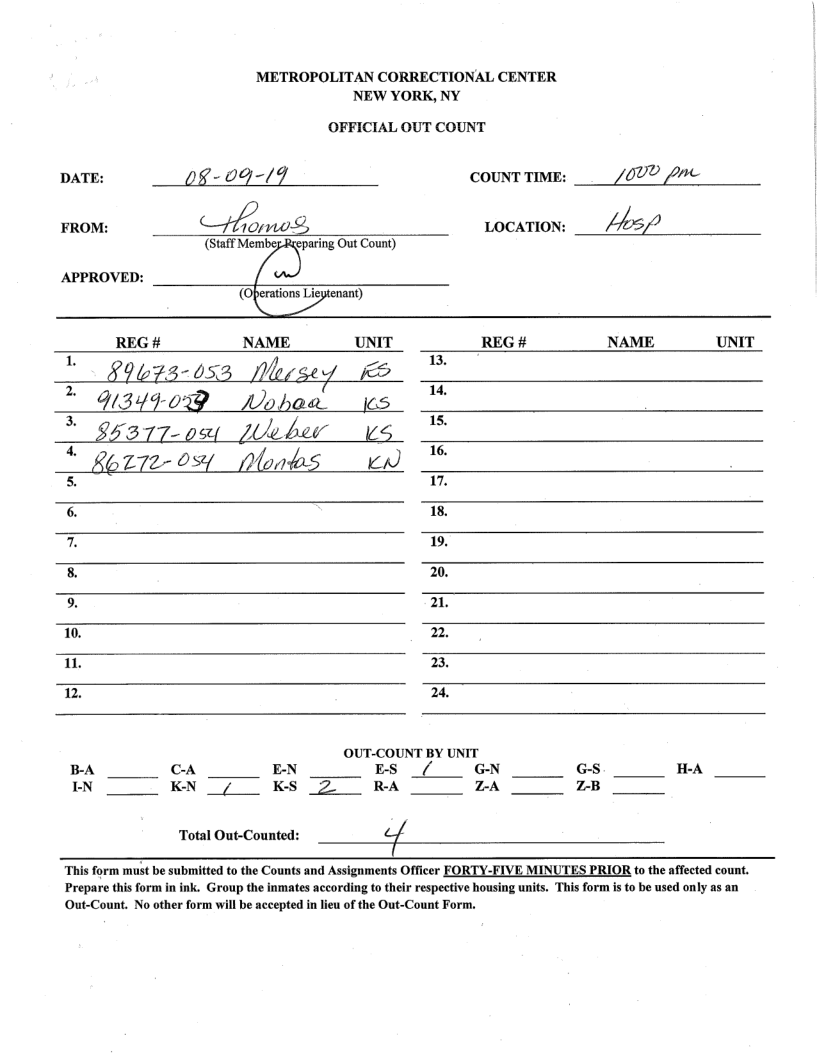 METROPOLITAN CORRECTIONAL CENTER
NEW YORK, NY
OFFICIAL OUT COUNT
DATE: 08-09-19 COUNT TIME: 1000 pm
FROM: Thomas LOCATION: Hosp
(Staff Member Preparing Out Count)
APPROVED:
(Operations Lieutenant)
REG # NAME UNIT REG # NAME UNIT
1. 89673-053 Mersey ES 13.
2. 91349-053 Nohaa KS 14.
3. 85377-054 Weber KS 15.
4. 86272-054 Montas KN 16.
5. 17.
6. 18.
7. 19.
8. 20.
9. 21.
10. 22.
11. 23.
12. 24.
OUT-COUNT BY UNIT
B-A C-A E-N E-S 1 G-N G-S H-A
I-N K-N 1 K-S 2 R-A Z-A Z-B
Total Out-Counted: 4
This form must be submitted to the Counts and Assignments Officer FORTY-FIVE MINUTES PRIOR to the affected count.
Prepare this form in ink. Group the inmates according to their respective housing units. This form is to be used only as an
Out-Count. No other form will be accepted in lieu of the Out-Count Form.